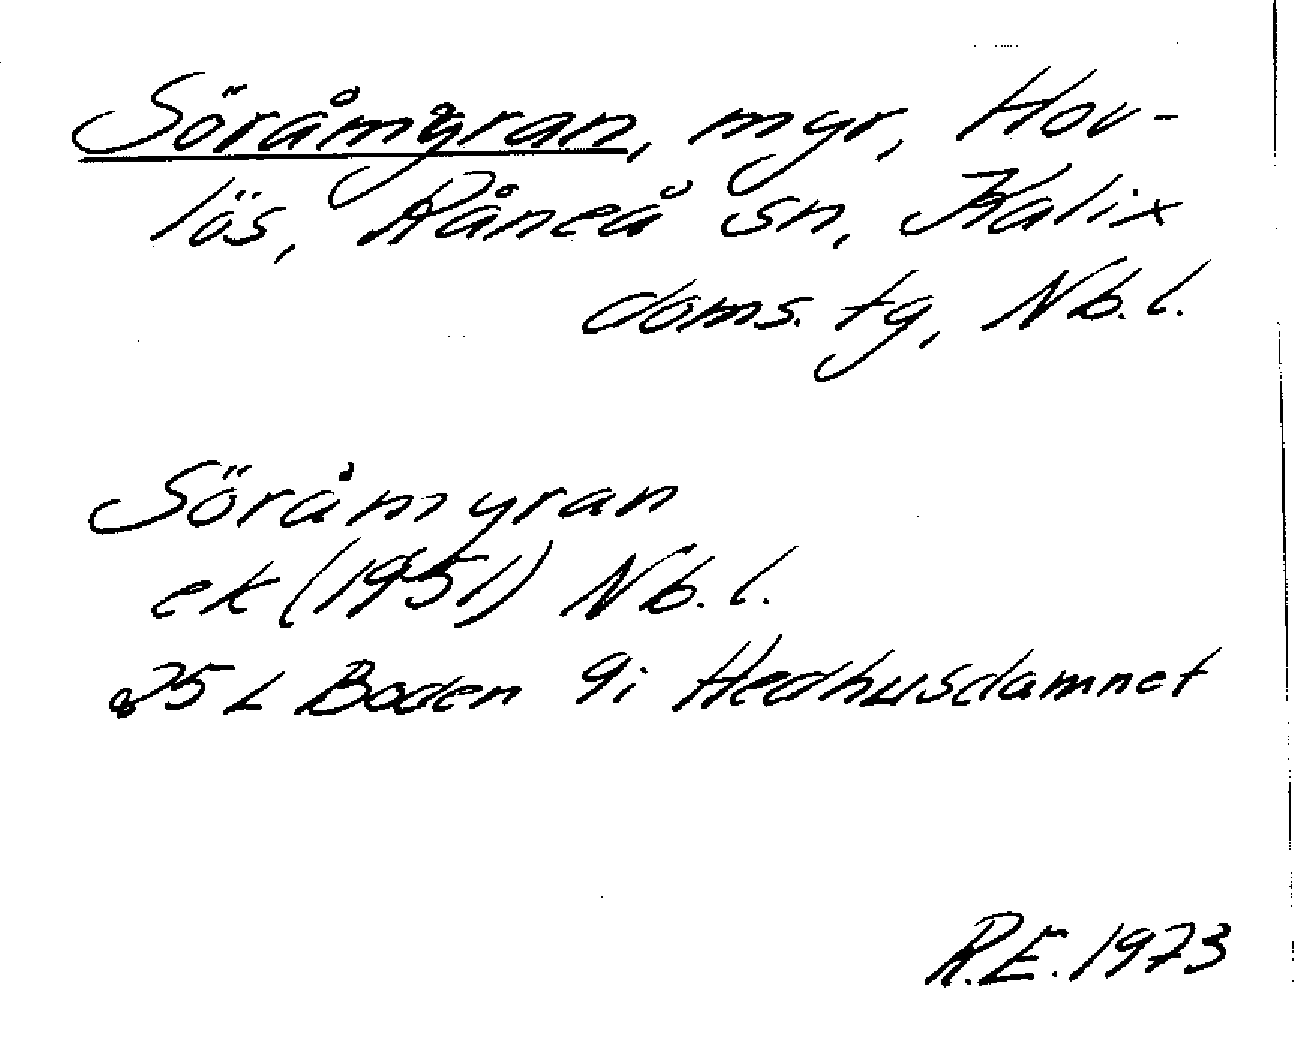 Söråmyran, myr, Hov-
lös, Råneå sn, Kalix
doms. tg, Nb. l.
Söråmyran
ek (1951) Nb. l.
25 L Boden 9i Hedhusdamnet
R.E. 1973